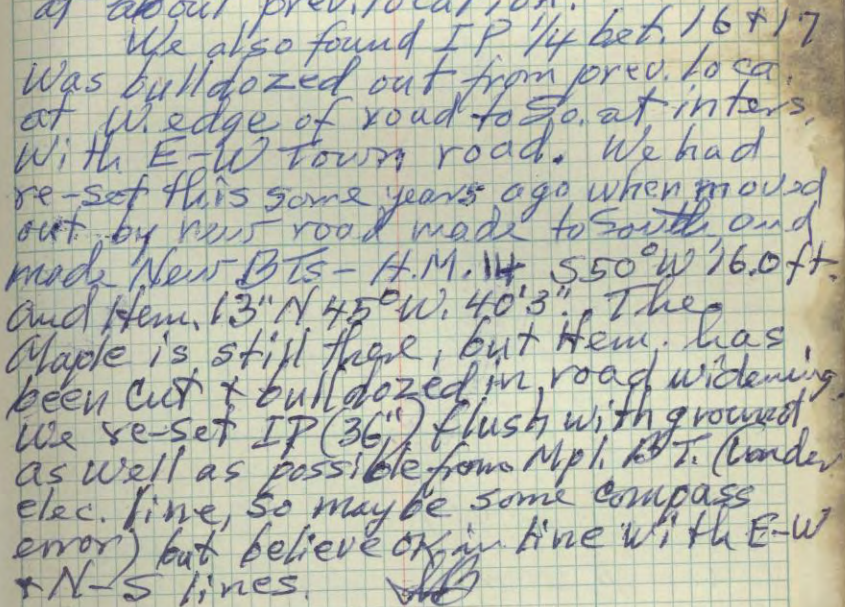 at about prev. location.
We also found IP 1/4 bet. 16 + 17
Was bulldozed out from prev. loca.
at W. edge of road to So. at inters.
With E-W Town road. We had
re-set this some years ago when moved
out by new road made to South, and
made New BTs - H.M. 14 S50°W 16.0 ft.
and Hem. 13" N 45° W. 40'3". The
Maple is still there, but Hem. has
been cut & bulldozed in road widening.
We re-set IP (36") flush with ground
as well as possible from Mpl. BT. (Under
elec. line, so maybe some compass
error) but believe OK in line with E-W
+ N-S lines.